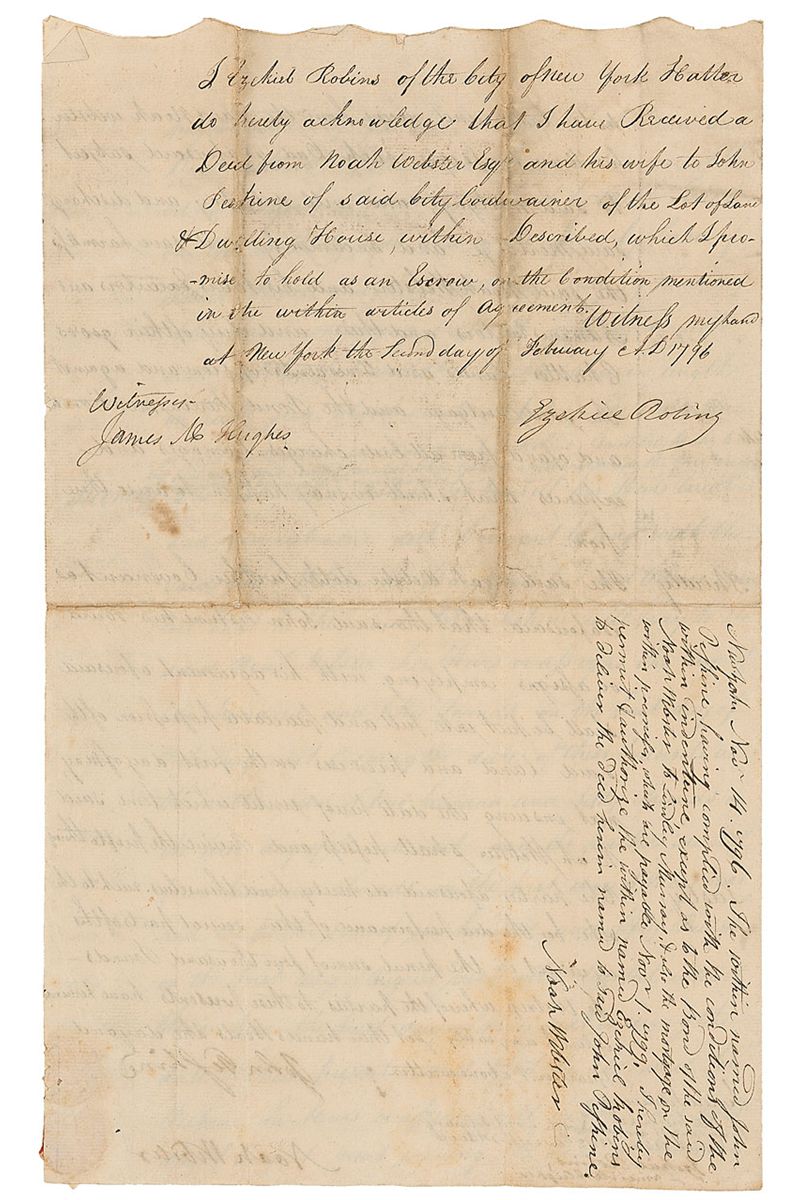 I Ezekiel Robins of the City of New York Hatter
do hereby acknowledge that I have Received a
Deed from Noah Webster Esqr and his wife to John
Peshine of said City Cordwainer of the Lot of Land
& Dwelling House, within Described, which I pro-
-mise to hold as an Escrow, on the Condition mentioned
in the within articles of Agreement. Witness my hand
at New York the Second day of February A.D 1796
Witness
James M Hughes
Ezekiel Robins
New York Novr 14. 1796. The within named John
Peshine, having complied with the conditions of the
within indenture, except as to the Bond of the said
Noah Webster to Lindley Murray, & also the mortgage on the
within premises, which are payable Novr 1. 1799, I hereby
permit & authorize the within named Ezekiel Robins
to deliver the deed herein named to said John Peshine.
Noah Webster